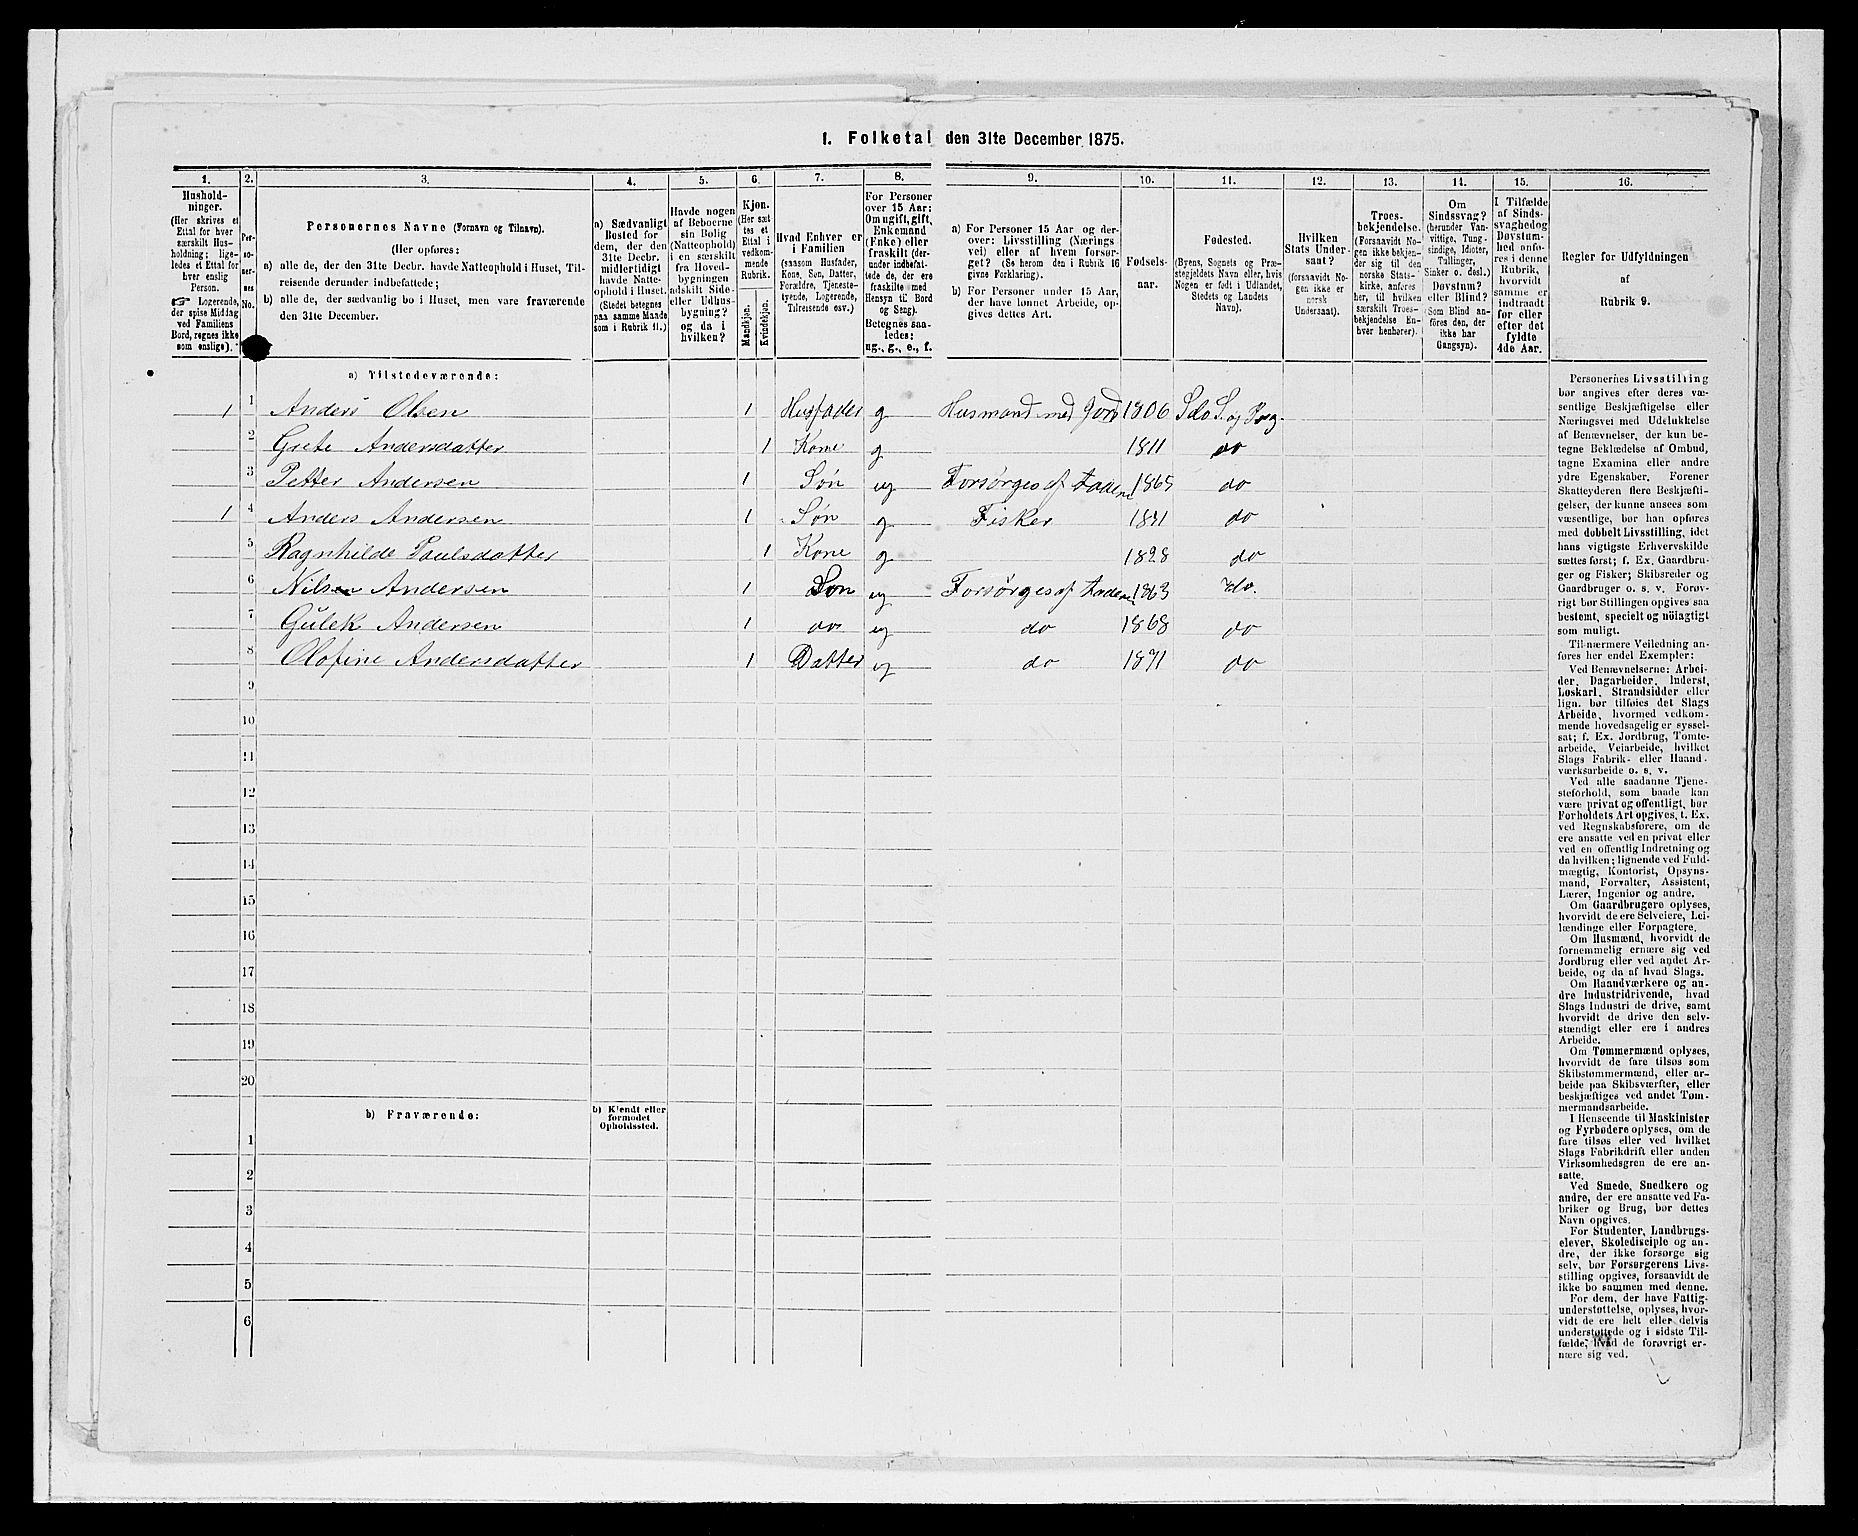 1. Folketal den 31te December 1875.
1. 2. 3. 4. 5. 6. 7. 8. 9. 10. 11. 12. 13. 14. 15. 16.
Hushold-
ninger.
(Her skrives et
Ettal for hver
særskilt Hus-
holdning; lige-
ledes et Ettal for
hver enslig
Person.
☞ Logerende,
der spise Middag
ved Familiens
Bord, regnes ikke
som enslige).
Per-
so-
ner-
nes
No.
Personernes Navne (Fornavn og Tilnavn).
(Her opføres:
a) alle de, der den 31te Decbr. havde Natteophold i Huset, Til-
reisende derunder indbefattede;
b) alle de, der sædvanlig bo i Huset, men vare fraværende
den 31te December.
a) Sædvanligt
Bosted for
dem, der den
31te Decbr.
midlertidigt
havde Natte-
ophold i Huset.
(Stedet betegnes
paa samme Maade
som i Rubrik 11.)
Havde nogen
af Beboerne
sin Bolig
(Natteophold)
i en særskilt
fra Hoved-
bygningen
adskilt Side-
eller Udhus-
bygning?
og da i
hvilken?
Kjøn.
(Her sæt-
tes et
Ettal i
vedkom-
mende
Rubrik.
Mandkjøn.
Kvindekjøn.
Hvad Enhver er
i Familien
(saasom Husfader,
Kone, Søn, Datter,
Forældre, Tjeneste-
tyende, Logerende,
Tilreisende osv.)
For Personer
over 15 Aar:
Om ugift, gift,
Enkemand
(Enke) eller
fraskilt (der-
under indbefat-
tede de, der ere
fraskilte med
Hensyn til Bord
og Seng).
Betegnes saa-
ledes:
ug., g., e., f.
a) For Personer 15 Aar og der-
over: Livsstilling (Nærings-
vei) eller af hvem forsør-
get? (Se herom den i Rubrik 16
givne Forklaring).
b) For Personer under 15 Aar,
der have lønnet Arbeide, op-
gives dettes Art.
Fødsels-
aar.
Fødested.
(Byens, Sognets og Præ-
stegjeldets Navn eller, hvis
Nogen er født i Udlandet,
Stedets og Landets
Navn).
Hvilken
Stats Under-
saat?
(forsaavidt No-
gen ikke er
norsk
Undersaat).
Troes-
bekjendelse.
(Forsaavidt No-
gen ikke bekjen-
der sig til den
norske Stats-
kirke, anføres
her, til hvilken
særskilt Troes-
bekjendelse En-
hver henhører).
Om
Sindssvag?
(herunder Van-
vittige, Tung-
sindige, Idioter,
Tullinger,
Sinker o. desl.)
Døvstum?
eller Blind?
(Som Blind an-
føres den, der
ikke har
Gangsyn).
I Tilfælde
af Sinds-
svaghed og
Døvstum-
hed anfø-
res i denne
Rubrik,
hvorvidt
samme er
indtraadt
før eller
efter det
fyldte
4de Aar.
Regler for Udfyldningen
af
Rubrik 9.
a) Tilstedeværende:
1 1 Anders Olsen 1 Husfader g Husmand med Jord 1806 S. og
2 Grete Andersdatter 1 Kone g 1811 do
3 Petter Andersen 1 Søn ug Forsørges af Faderen 1865 do
1 4 Anders Andersen 1 Søn g Fisker 1841 do
5 Ragnhilde Paulsdatter 1 Kone g 1828 do
6 Nilsen Andersen 1 Søn ug Forsørges af Faderen 1863 do.
7 Gulek Andersen 1 do ug do 1868 do
8 Olofine Andersdatter 1 Datter ug do 1871 do
9
10
11
12
13
14
15
16
17
18
19
20
b) Fraværende:
b) Kjendt eller
formodet
Opholdssted.
1
2
3
4
5
6
Personernes Livsstilling
bør angives efter deres væ-
sentlige Beskjæftigelse eller
Næringsvei med Udelukkelse
af Benævnelser, der kun be-
tegne Beklædelse af Ombud,
tagne Examina eller andre
ydre Egenskaber. Forener
Skatteyderen flere Beskjæfti-
gelser, der kunne ansees som
væsentlige, bør han opføres
med dobbelt Livsstilling, idet
hans vigtigste Erhvervskilde
sættes først; f. Ex. Gaardbru-
ger og Fisker; Skibsreder og
Gaardbruger o. s. v. Forøv-
rigt bør Stillingen opgives saa
bestemt, specielt og nöiagtigt
som muligt.
Til nærmere Veiledning an-
føres her endel Exempler:
Ved Benævnelserne: Arbei-
der, Dagarbeider, Inderst,
Løskarl, Strandsidder eller
lign. bør tilføies det Slags
Arbeide, hvormed vedkom-
mende hovedsagelig er syssel-
sat; f. Ex. Jordbrug, Tomte-
arbeide, Veiarbeide, hvilket
Slags Fabrik- eller Haand-
værksarbeide o. s. v.
Ved alle saadanne Tjene-
steforhold, som baade kan
være privat og offentligt, bør
Forholdets Art opgives, t. Ex.
ved Regnskabsførere, om de
ere ansatte ved en privat eller
ved en offentlig Indretning og
da hvilken; lignende ved Fuld-
mægtig, Kontorist, Opsyns-
mand, Forvalter, Assistent,
Lærer, Ingeniør og andre.
Om Gaardbrugere oplyses,
hvorvidt de ere Selveiere, Lei-
lændinge eller Forpagtere.
Om Husmænd, hvorvidt de
fornemmelig ernære sig ved
Jordbrug eller ved andet Ar-
beide, og da af hvad Slags.
Om Haandværkere og an-
dre Industridrivende, hvad
Slags Industri de drive, samt
hvorvidt de drive den selv-
stændigt eller ere i andres
Arbeide.
Om Tømmermænd oplyses,
hvorvidt de fare tilsøs som
Skibstømmermænd, eller ar-
beide paa Skibsværfter, eller
beskjæftiges ved andet Tøm-
mermandsarbeide.
I Henseende til Maskinister
og Fyrbødere oplyses, om de
fare tilsøs eller ved hvilket
Slags Fabrikdrift eller anden
Virksomhedsgren de ere an-
satte.
Ved Smede, Snedkere og
andre, der ere ansatte ved Fa-
briker og Brug, bør dettes
Navn opgives.
For Studenter, Landbrugs-
elever, Skoledisciple og an-
dre, der ikke forsørge sig
selv, bør Forsørgerens Livs-
stilling opgives, forsaavidt de
ikke bo sammen med denne.
For dem, der have Fattig-
understøttelse, oplyses, hvor-
vidt de ere helt eller delvis
understøttede og i sidste Til-
fælde, hvad de forøvrigt er-
nære sig ved.